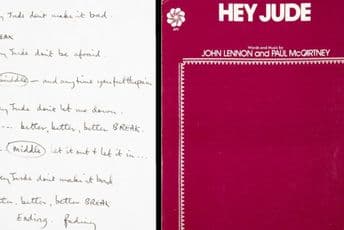 Jude don't make it bad.
BREAK
Jude don't be afraid.
middle — and any time you feel the pain
Jude don't let me down.
... better, better, better BREAK.
middle let it out & let it in...
Jude don't make it bad
better, better BREAK
Ending. fading
HEY JUDE
Words and Music by
JOHN LENNON and PAUL McCARTNEY